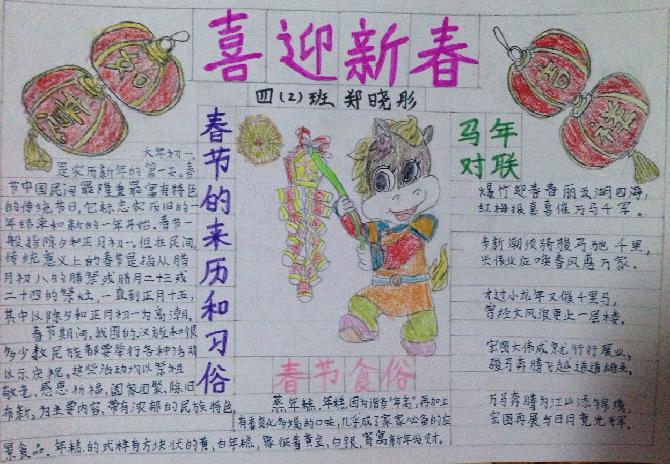 喜迎新春
四(2)班 郑晓彤
吉祥
如意
春节的来历和习俗
大年初一,
是农历新年的第一天。春
节中国民间最隆重最富有特色
的传统节日,它标志农历旧的一
年结束和新的一年开始。春节一
般指除夕和正月初一。但在民间,
传统意义上的春节是指从腊
月初八的腊祭或腊月二十三或
二十四的祭灶,一直到正月十五,
其中以除夕和正月初一为高潮。
春节期间,我国的汉族和很
多少数民族都要举行各种活动
以示庆祝。这些活动均以祭祖
敬老、感恩祈福、阖家团聚、除旧
布新,为主要内容,带有浓郁的民族特色
春节食俗
蒸年糕,年糕因为谐音"年高",再加上
有着变化多端的口味,几乎成了家家必备的应
景食品。年糕的式样有方块状的黄、白年糕,象征着黄金、白银,寄寓新年发财。
马年
对联
爆竹迎春春丽五湖四海,
红梅报喜喜催万马千军。
千里,
万家。
才过小龙年又催千里马,
曾经大风浪更上一层楼。
宏图大伟成就行行展业,
骏马奔腾飞越道道雄关。
万马奔腾为江山添锦绣,
宏图再展与日月竞光辉。